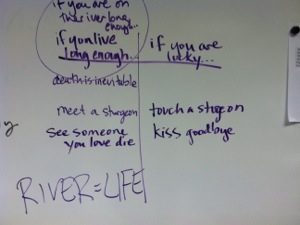 if you are on
this river long
enough...
if you live
long enough...
if you are
lucky...
death is inevitable
meet a sturgeon
touch a sturgeon
see someone
you love die
kiss goodbye
y
RIVER=LIFE